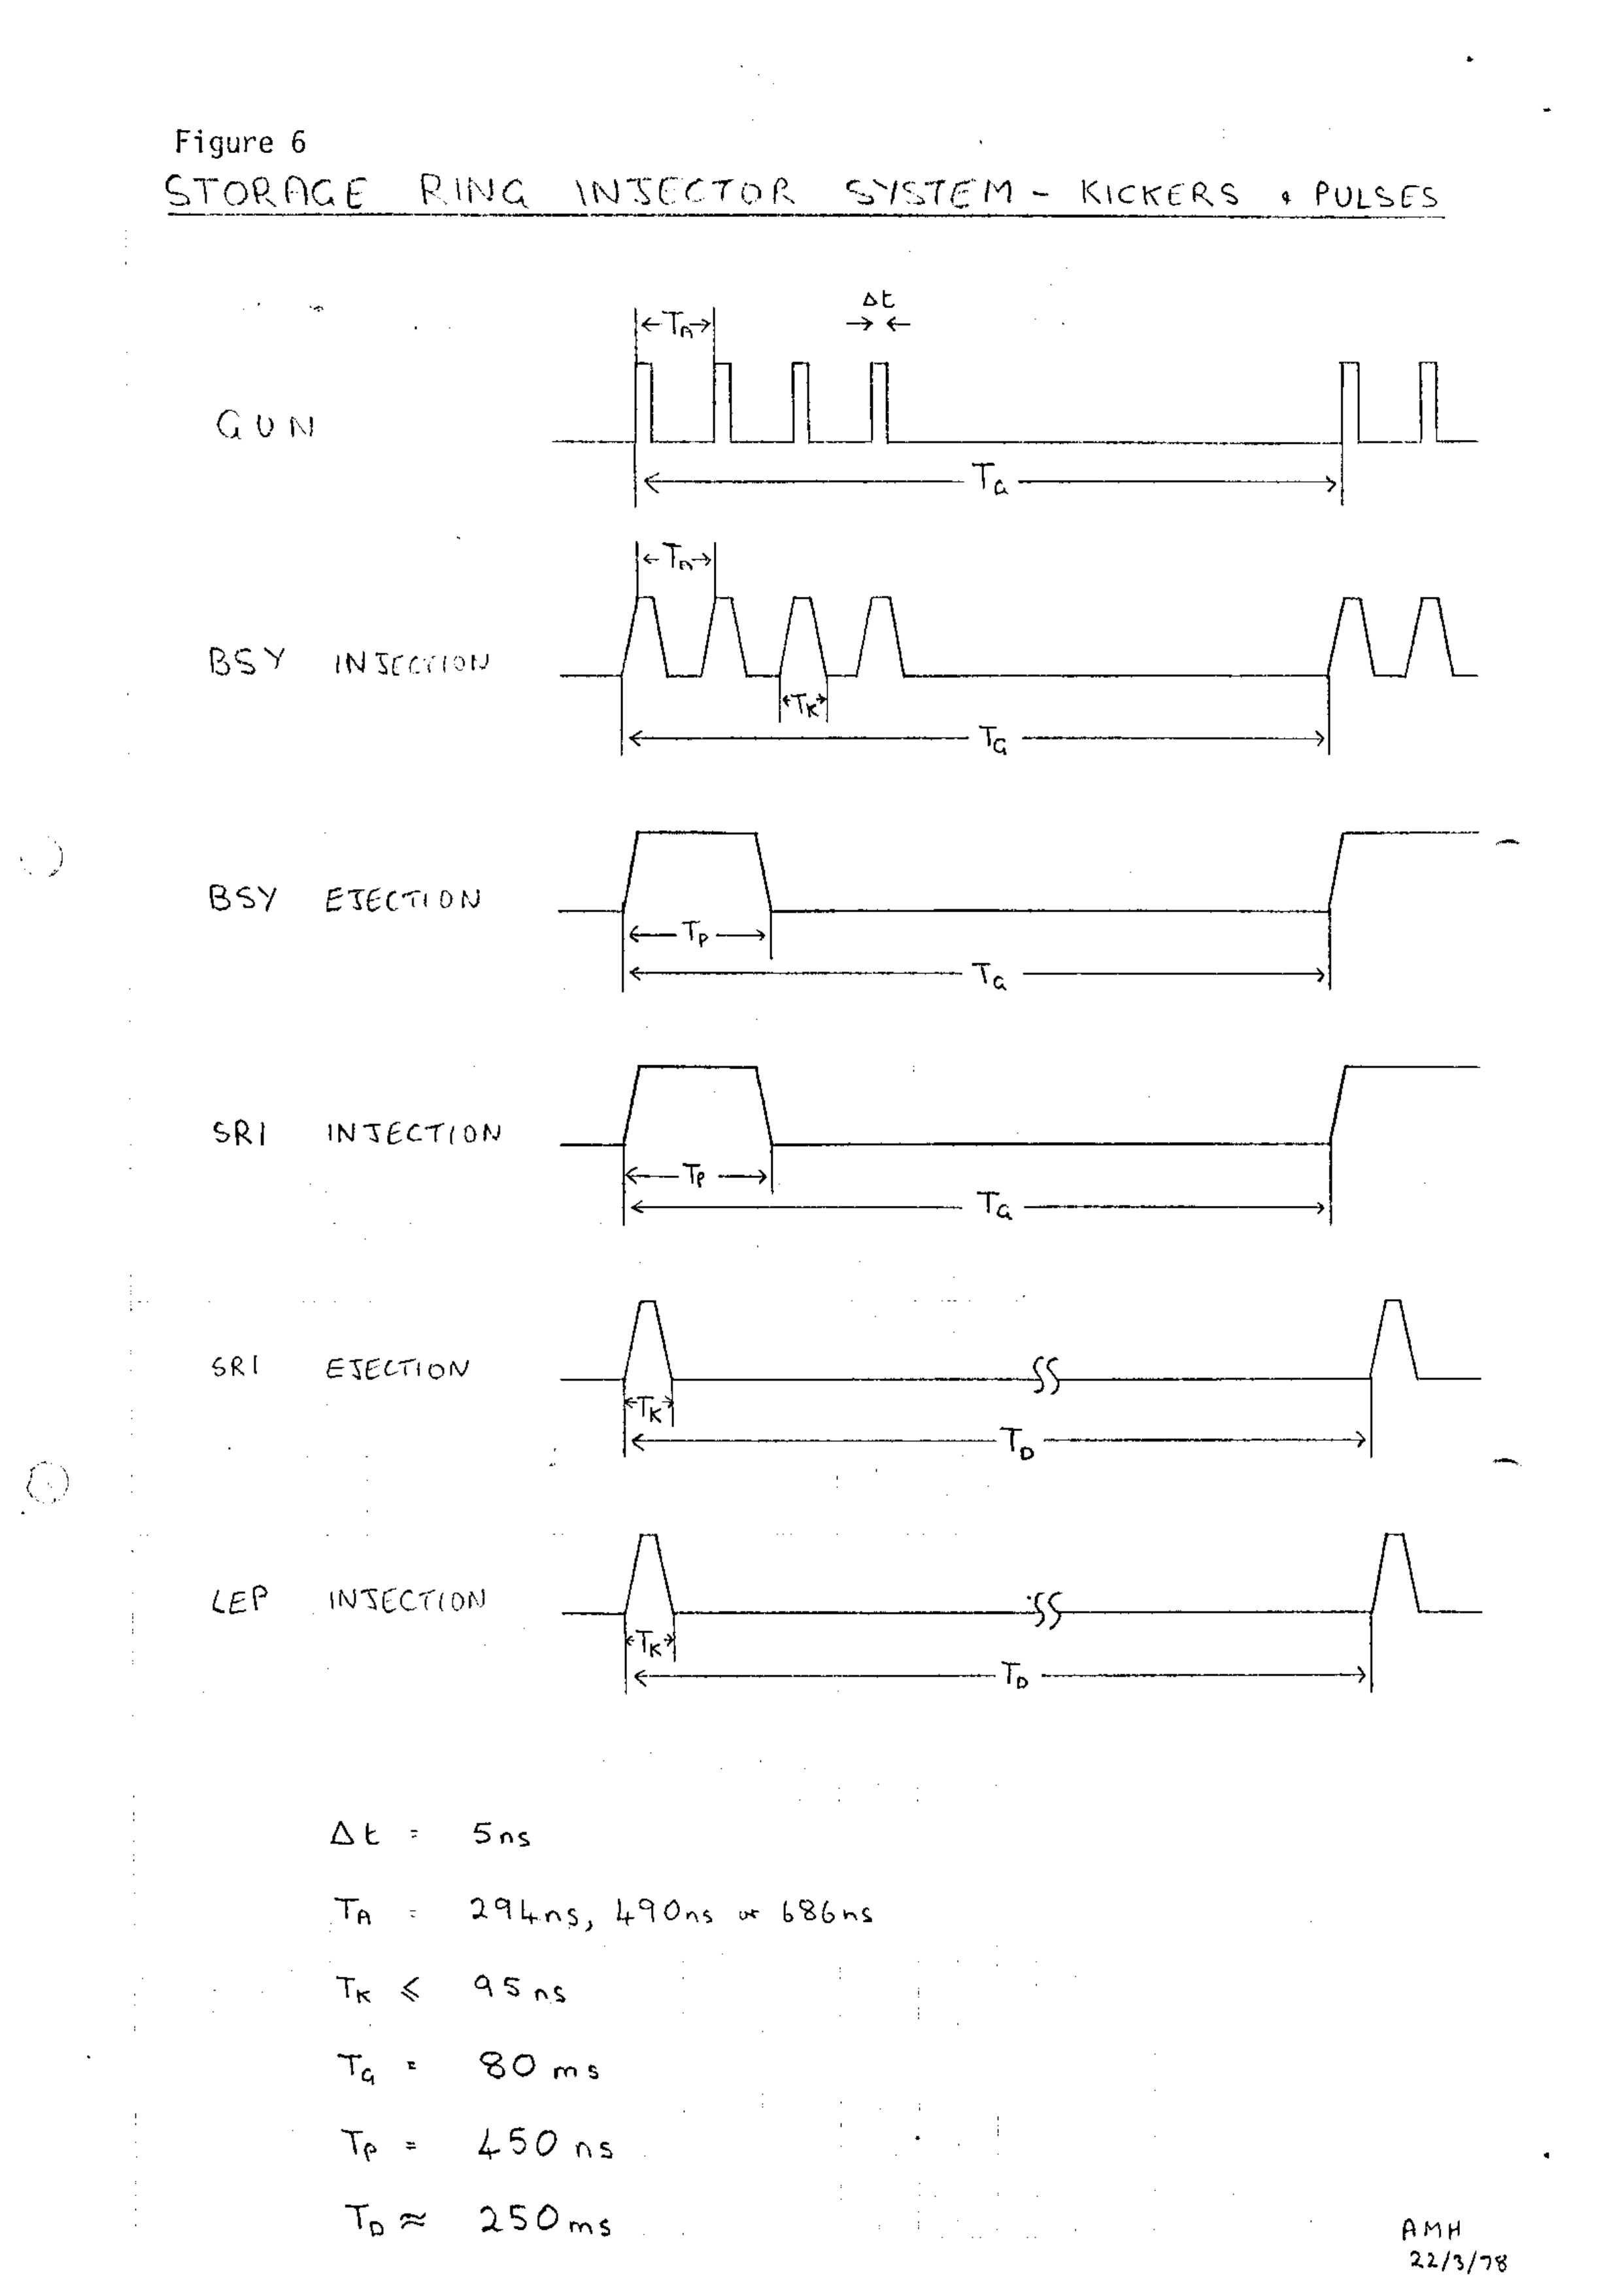 Figure 6
STORAGE RING INJECTOR SYSTEM - KICKERS & PULSES
Δt
←TA→
→ ←
GUN
TG
←TA→
BSY INJECTION
TK
TG
BSY EJECTION
TP
TG
SRI INJECTION
TP
TG
SRI EJECTION
TK
TD
LEP INJECTION
TK
TD
Δt = 5ns
TA = 294ns, 490ns or 686ns
TK ≤ 95ns
TG = 80ms
TP = 450ns
TD ≈ 250ms
AMH
22/3/78